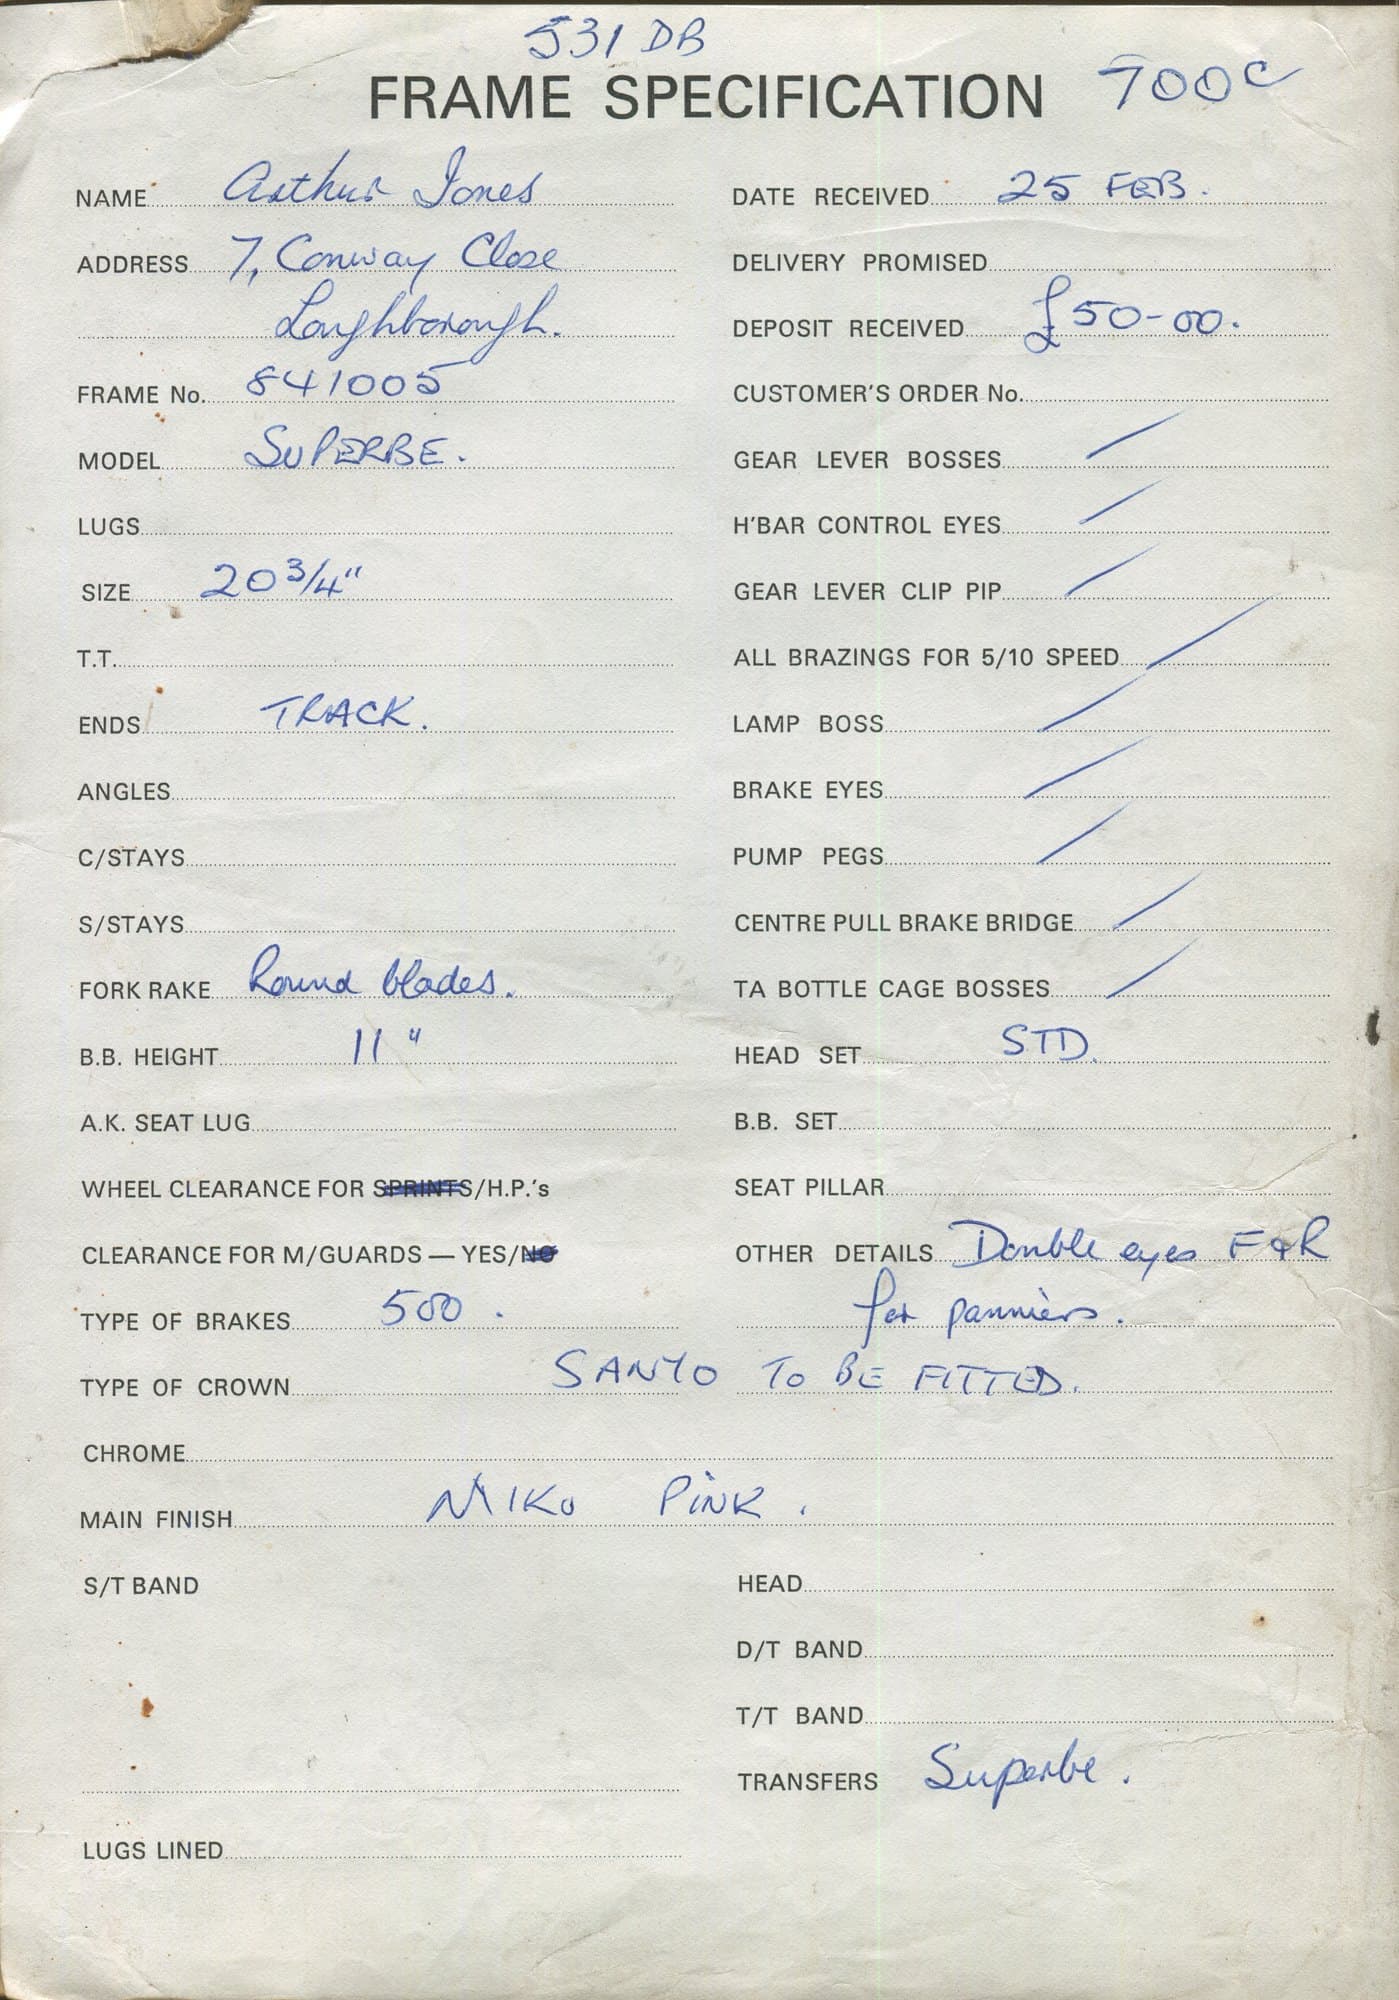 531 DB
FRAME SPECIFICATION 700C
NAME Arthur Jones
ADDRESS 7, Conway Close
Loughborough.
FRAME No. 841005
MODEL SUPERBE.
LUGS
SIZE 20 3/4"
T.T.
ENDS TRACK.
ANGLES
C/STAYS
S/STAYS
FORK RAKE Round blades.
B.B. HEIGHT 11"
A.K. SEAT LUG
WHEEL CLEARANCE FOR SPRINTS/H.P.'s
CLEARANCE FOR M/GUARDS — YES/NO
TYPE OF BRAKES 500.
TYPE OF CROWN
DATE RECEIVED 25 FEB.
DELIVERY PROMISED
DEPOSIT RECEIVED £50-00.
CUSTOMER'S ORDER No.
GEAR LEVER BOSSES /
H'BAR CONTROL EYES /
GEAR LEVER CLIP PIP /
ALL BRAZINGS FOR 5/10 SPEED /
LAMP BOSS /
BRAKE EYES /
PUMP PEGS /
CENTRE PULL BRAKE BRIDGE /
TA BOTTLE CAGE BOSSES /
HEAD SET STD.
B.B. SET
SEAT PILLAR
OTHER DETAILS Double eyes F & R
for panniers.
SANYO TO BE FITTED.
CHROME
MAIN FINISH MIKO PINK.
S/T BAND
LUGS LINED
HEAD
D/T BAND
T/T BAND
TRANSFERS Superbe.